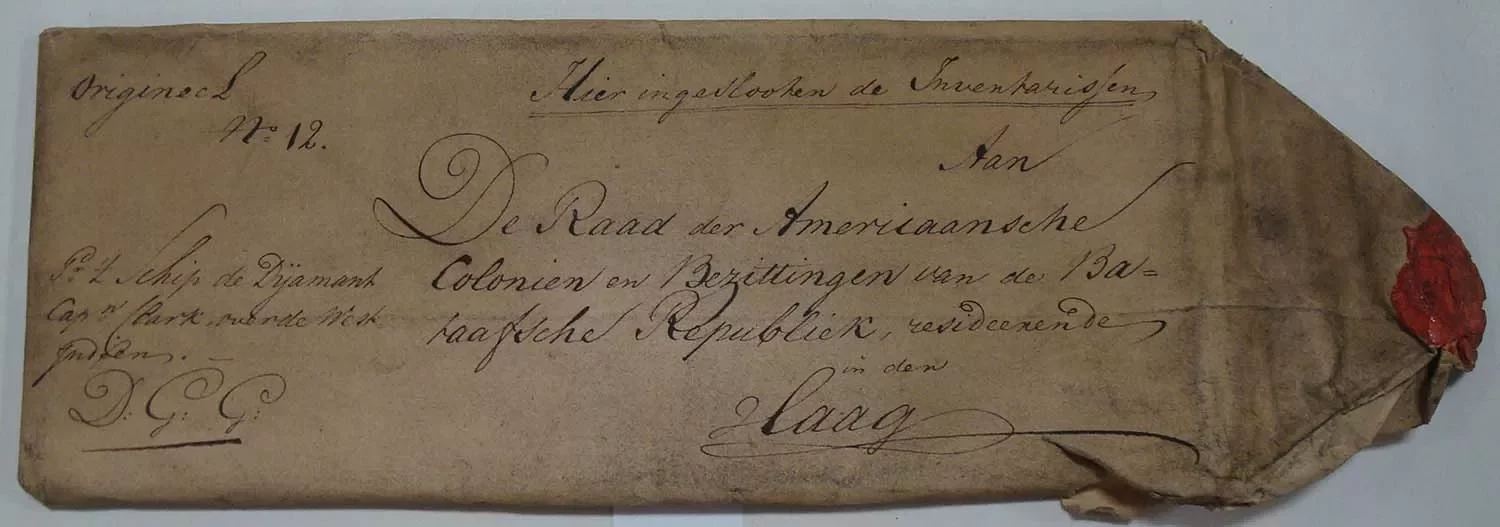 Origineel
No. 12.
Hier ingeslooten de Inventarissen
Aan
De Raad der Americaansche
Colonien en Bezittingen van de Ba=
taafsche Republiek, resideerende
in den
Haag
Pr. 't Schip de Dijamant
Capn. Clark, over de West
Indien. —
D: G: G: